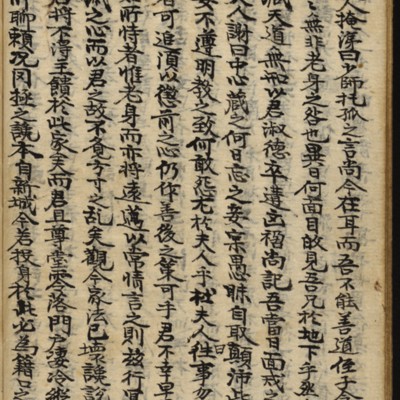 人掩涕曰以師托孤之言尚今在耳而吾不能善道侄子令
無非老身之咎也異日何面目敢見吾兄於地下乎丞
天道無知以君淑德卒遭凶禍尚記吾當日面戒之
夫人謝曰中心藏之何日忘之妾宲愚昧自取顚沛此
妾不遵明敎之致何敢怨尤於夫人乎杜夫人曰徃事勿
者可追須以懲前之心仍作善後之策可乎君不幸早
所恃者惟老身而亦將遠邁以常情言之則旅行
之心而以君之故不覺方寸之亂矣觀今家法已壞讒諂
君將不得主饋於此家矣而君且尊堂零落門户凄冷
所聊賴况罔極之讒本自新城今若投身於此必爲籍口之